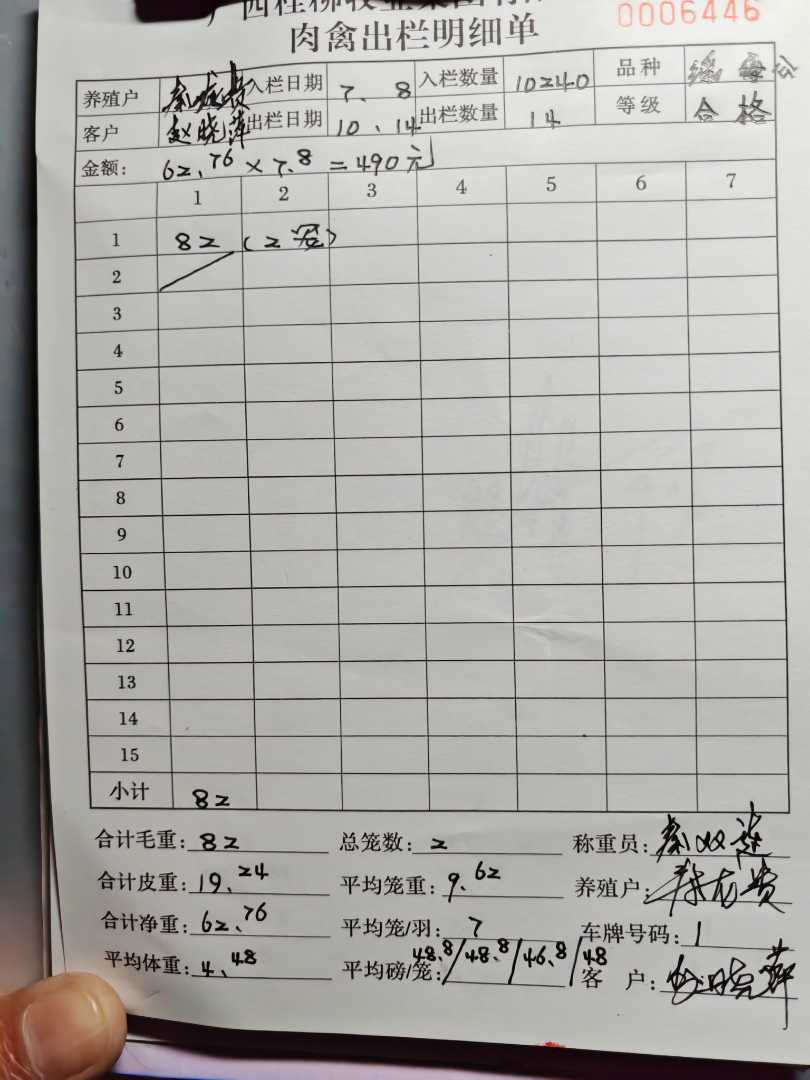 0006446
肉禽出栏明细单
养殖户 入栏日期 7.8 入栏数量 10240 品种
客户 赵晓萍 出栏日期 10.14 出栏数量 14 等级 合格
金额: 62.76 × 7.8 = 490元
1 2 3 4 5 6 7
1 82 (2笼)
2
3
4
5
6
7
8
9
10
11
12
13
14
15
小计 82
合计毛重: 82 总笼数: 2 称重员:
合计皮重: 19.24 平均笼重: 9.62 养殖户:
合计净重: 62.76 平均笼/羽: 7 车牌号码: 1
平均体重: 4.48 平均磅/笼: 48.8/48.8/46.8/48 客 户: 赵晓萍